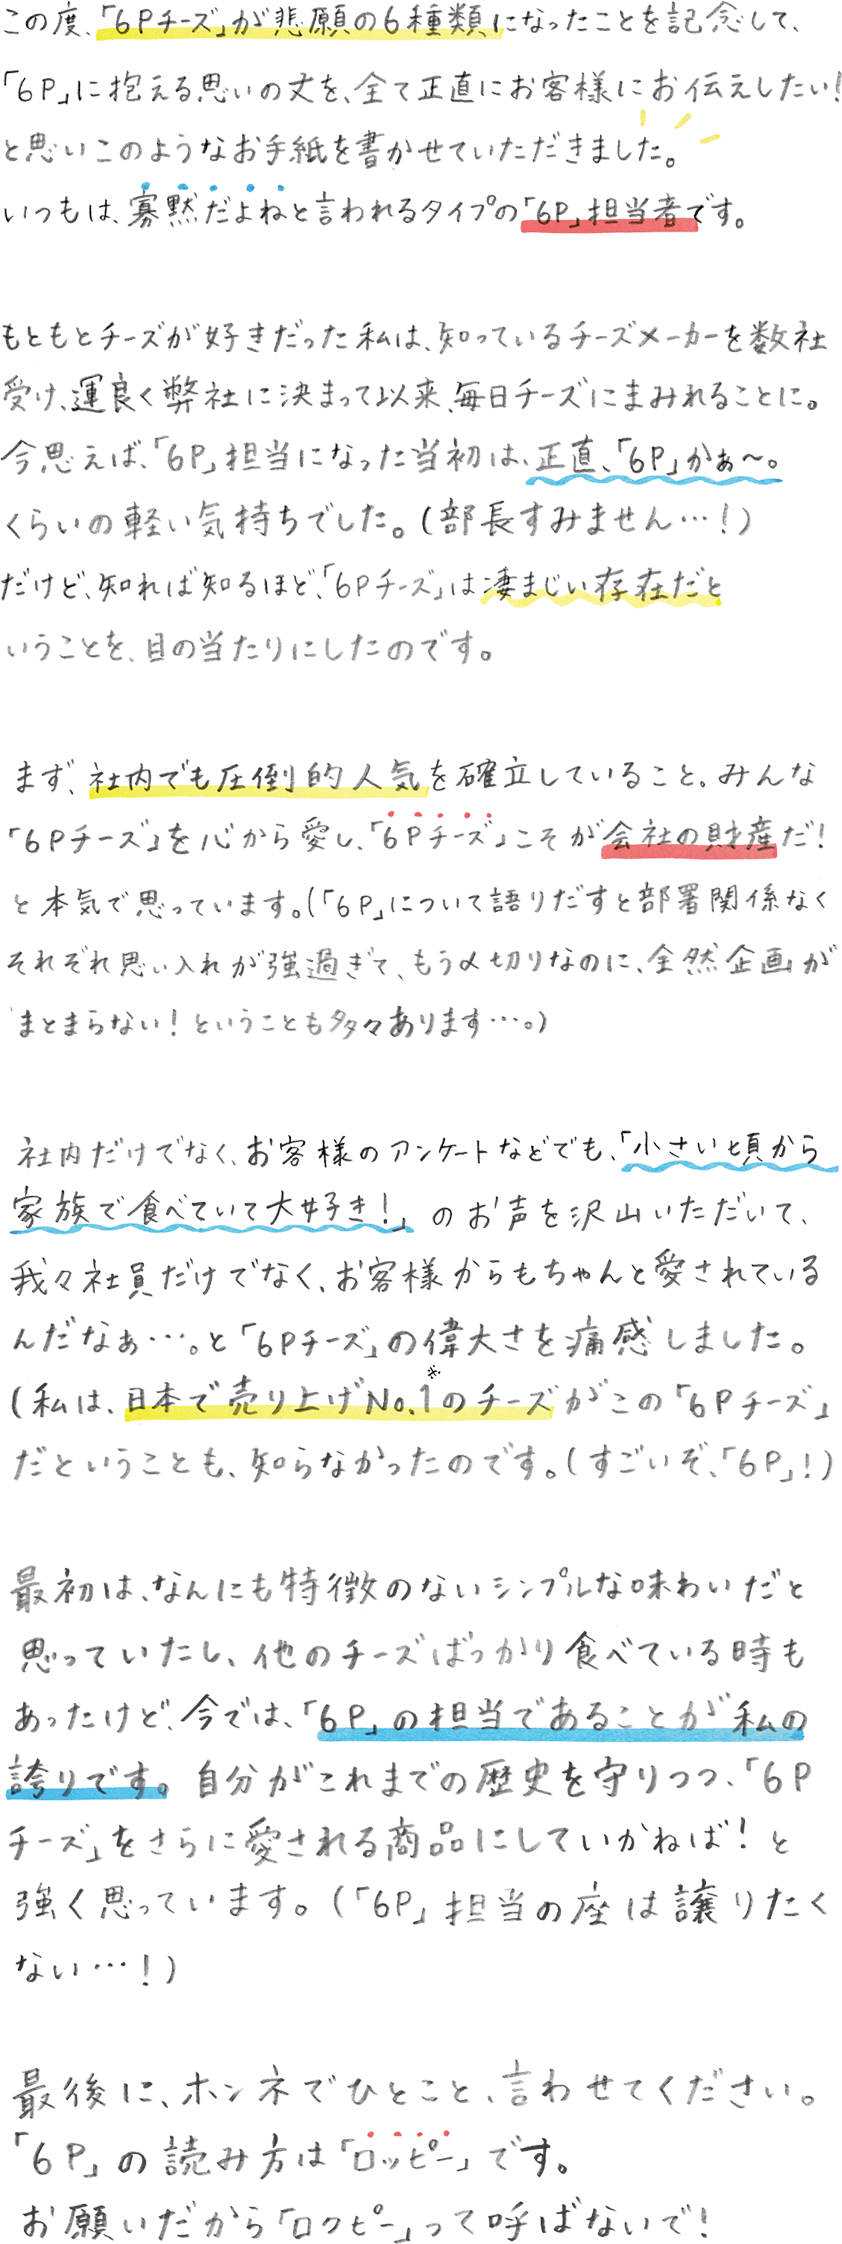 この度、「6Pチーズ」が悲願の6種類になったことを記念して、
「6P」に抱える思いの丈を、全て正直にお客様にお伝えしたい!
と思いこのようなお手紙を書かせていただきました。
いつもは、寡黙だよねと言われるタイプの「6P」担当者です。
もともとチーズが好きだった私は、知っているチーズメーカーを数社
受け、運良く弊社に決まって以来、毎日チーズにまみれることに。
今思えば、「6P」担当になった当初は、正直、「6P」かぁ~。
くらいの軽い気持ちでした。(部長すみません…!)
だけど、知れば知るほど、「6Pチーズ」は凄まじい存在だと
いうことを、目の当たりにしたのです。
まず、社内でも圧倒的人気を確立していること。みんな
「6Pチーズ」を心から愛し、「6Pチーズ」こそが会社の財産だ!
と本気で思っています。(「6P」について語りだすと部署関係なく
それぞれ思い入れが強過ぎて、もう〆切りなのに、全然企画が
まとまらない!ということも多々あります…。)
社内だけでなく、お客様のアンケートなどでも、「小さい頃から
家族で食べていて大好き!」のお声を沢山いただいて、
我々社員だけでなく、お客様からもちゃんと愛されている
んだなぁ…。と「6Pチーズ」の偉大さを痛感しました。
(私は、日本で売り上げNo.1※のチーズがこの「6Pチーズ」
だということも、知らなかったのです。(すごいぞ、「6P」!)
最初は、なんにも特徴のないシンプルな味わいだと
思っていたし、他のチーズばっかり食べている時も
あったけど、今では、「6P」の担当であることが私の
誇りです。自分がこれまでの歴史を守りつつ、「6P
チーズ」をさらに愛される商品にしていかねば!と
強く思っています。(「6P」担当の座は譲りたく
ない…!)
最後に、ホンネでひとこと、言わせてください。
「6P」の読み方は「ロッピー」です。
お願いだから「ロクピー」って呼ばないで!